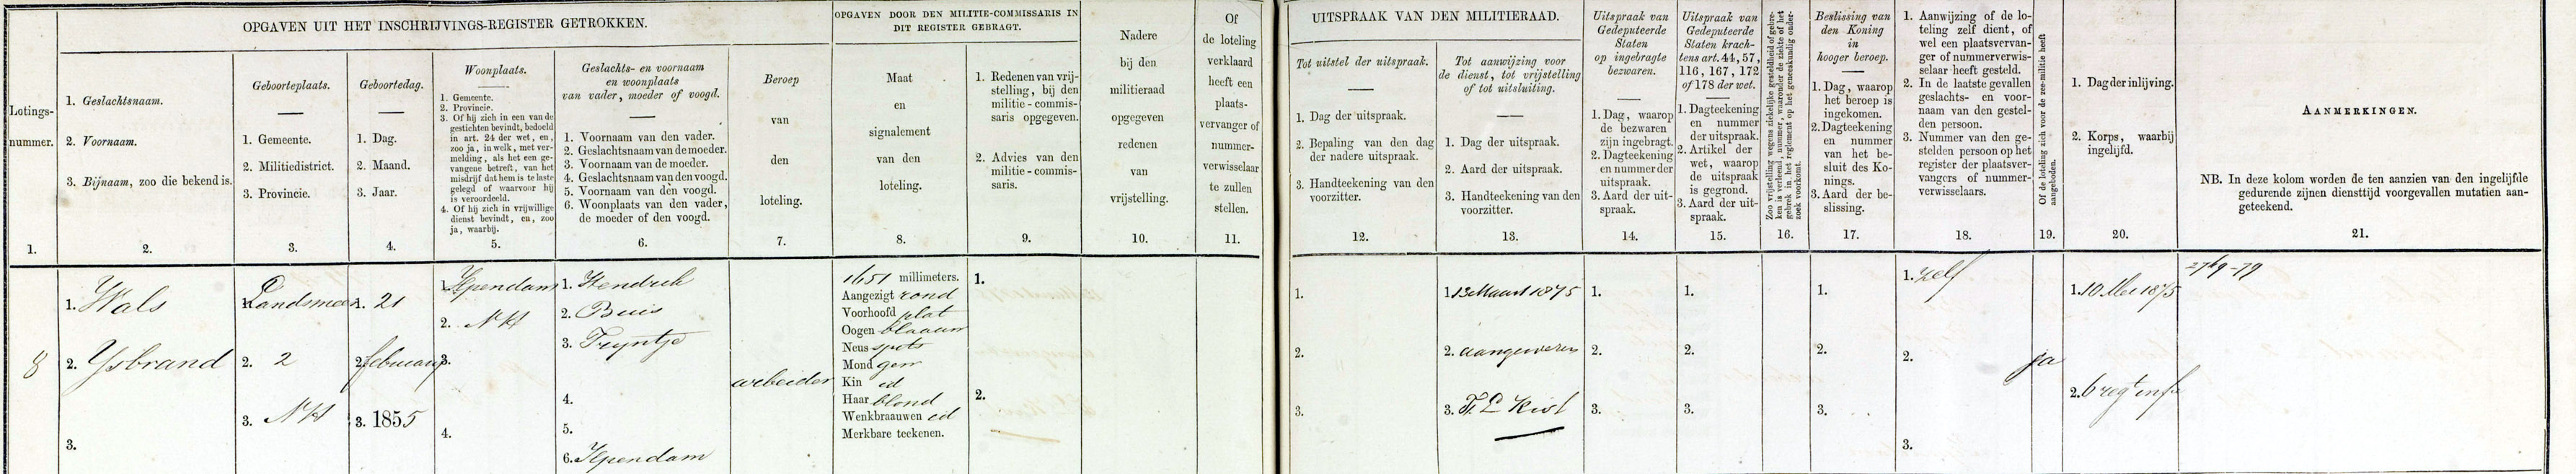 OPGAVEN UIT HET INSCHRIJVINGS-REGISTER GETROKKEN.
OPGAVEN DOOR DEN MILITIE-COMMISSARIS IN
DIT REGISTER GEBRAGT.
Lotings-
nummer.
1.
1. Geslachtsnaam.
2. Voornaam.
3. Bijnaam, zoo die bekend is.
2.
Geboorteplaats.
1. Gemeente.
2. Militiedistrict.
3. Provincie.
3.
Geboortedag.
1. Dag.
2. Maand.
3. Jaar.
4.
Woonplaats.
1. Gemeente.
2. Provincie.
3. Of hij zich in een van de
gestichten bevindt, bedoeld
in art. 24 der wet, en,
zoo ja, in welk, met ver-
melding, als het een ge-
vangene betreft, van het
misdrijf dat hem is te laste
gelegd of waarvoor hij
is veroordeeld.
4. Of hij zich in vrijwillige
dienst bevindt, en, zoo
ja, waarbij.
5.
Geslachts- en voornaam
en woonplaats
van vader, moeder of voogd.
1. Voornaam van den vader.
2. Geslachtsnaam van de moeder.
3. Voornaam van de moeder.
4. Geslachtsnaam van den voogd.
5. Voornaam van den voogd.
6. Woonplaats van den vader,
de moeder of den voogd.
6.
Beroep
van
den
loteling.
7.
Maat
en
signalement
van den
loteling.
8.
1. Redenen van vrij-
stelling, bij den
militie-commis-
saris opgegeven.
2. Advies van den
militie-commis-
saris.
9.
Nadere
bij den
militieraad
opgegeven
redenen
van
vrijstelling.
10.
Of
de loteling
verklaard
heeft een
plaats-
vervanger of
nummer-
verwisselaar
te zullen
stellen.
11.
UITSPRAAK VAN DEN MILITIERAAD.
Tot uitstel der uitspraak.
1. Dag der uitspraak.
2. Bepaling van den dag
der nadere uitspraak.
3. Handteekening van den
voorzitter.
12.
Tot aanwijzing voor
de dienst, tot vrijstelling
of tot uitsluiting.
1. Dag der uitspraak.
2. Aard der uitspraak.
3. Handteekening van den
voorzitter.
13.
Uitspraak van
Gedeputeerde
Staten
op ingebragte
bezwaren.
1. Dag, waarop
de bezwaren
zijn ingebragt.
2. Dagteekening
en nummer der
uitspraak.
3. Aard der uit-
spraak.
14.
Uitspraak van
Gedeputeerde
Staten krach-
tens art. 44, 57,
116, 167, 172
of 178 der wet.
1. Dagteekening
en nummer
der uitspraak.
2. Artikel der
wet, waarop
de uitspraak
is gegrond.
3. Aard der uit-
spraak.
15.
Zoo vrijstelling wegens ziekelijke gesteldheid of gebre-
ken is verleend, nummer, waaronder de ziekte of het
gebrek in het reglement op het geneeskundig onder-
zoek voorkomt.
16.
Beslissing van
den Koning
in
hooger beroep.
1. Dag, waarop
het beroep is
ingekomen.
2. Dagteekening
en nummer
van het be-
sluit des Ko-
nings.
3. Aard der be-
slissing.
17.
1. Aanwijzing of de lo-
teling zelf dient, of
wel een plaatsvervan-
ger of nummerverwis-
selaar heeft gesteld.
2. In de laatste gevallen
geslachts- en voor-
naam van den gestel-
den persoon.
3. Nummer van den ge-
stelden persoon op het
register der plaatsver-
vangers of nummer-
verwisselaars.
18.
Of de loteling zich voor de zee-militie heeft
aangeboden.
19.
1. Dag der inlijving.
2. Korps, waarbij
ingelijfd.
20.
AANMERKINGEN.
NB. In deze kolom worden de ten aanzien van den ingelijfde
gedurende zijnen diensttijd voorgevallen mutatien aan-
geteekend.
21.
8
1. Wals
2. Ysbrand
3.
1. Landsmeer
2. 2
3. NH
1. 21
2. februarij
3. 1855
1. Ilpendam
2. NH
3.
4.
1. Hendrik
2. Buis
3. Tryntje
4.
5.
6. Ilpendam
arbeider
1651 millimeters.
Aangezigt rond
Voorhoofd plat
Oogen blaauw
Neus spits
Mond gew
Kin id
Haar blond
Wenkbraauwen id
Merkbare teekenen.
1.
2.
1.
2.
3.
1. 13 Maart 1875
2. aangewezen
3. Kist
1.
2.
3.
1.
2.
3.
1.
2.
3.
1. Zelf
2.
3.
ja
1. 10 Mei 1875
2. 6 regt inf